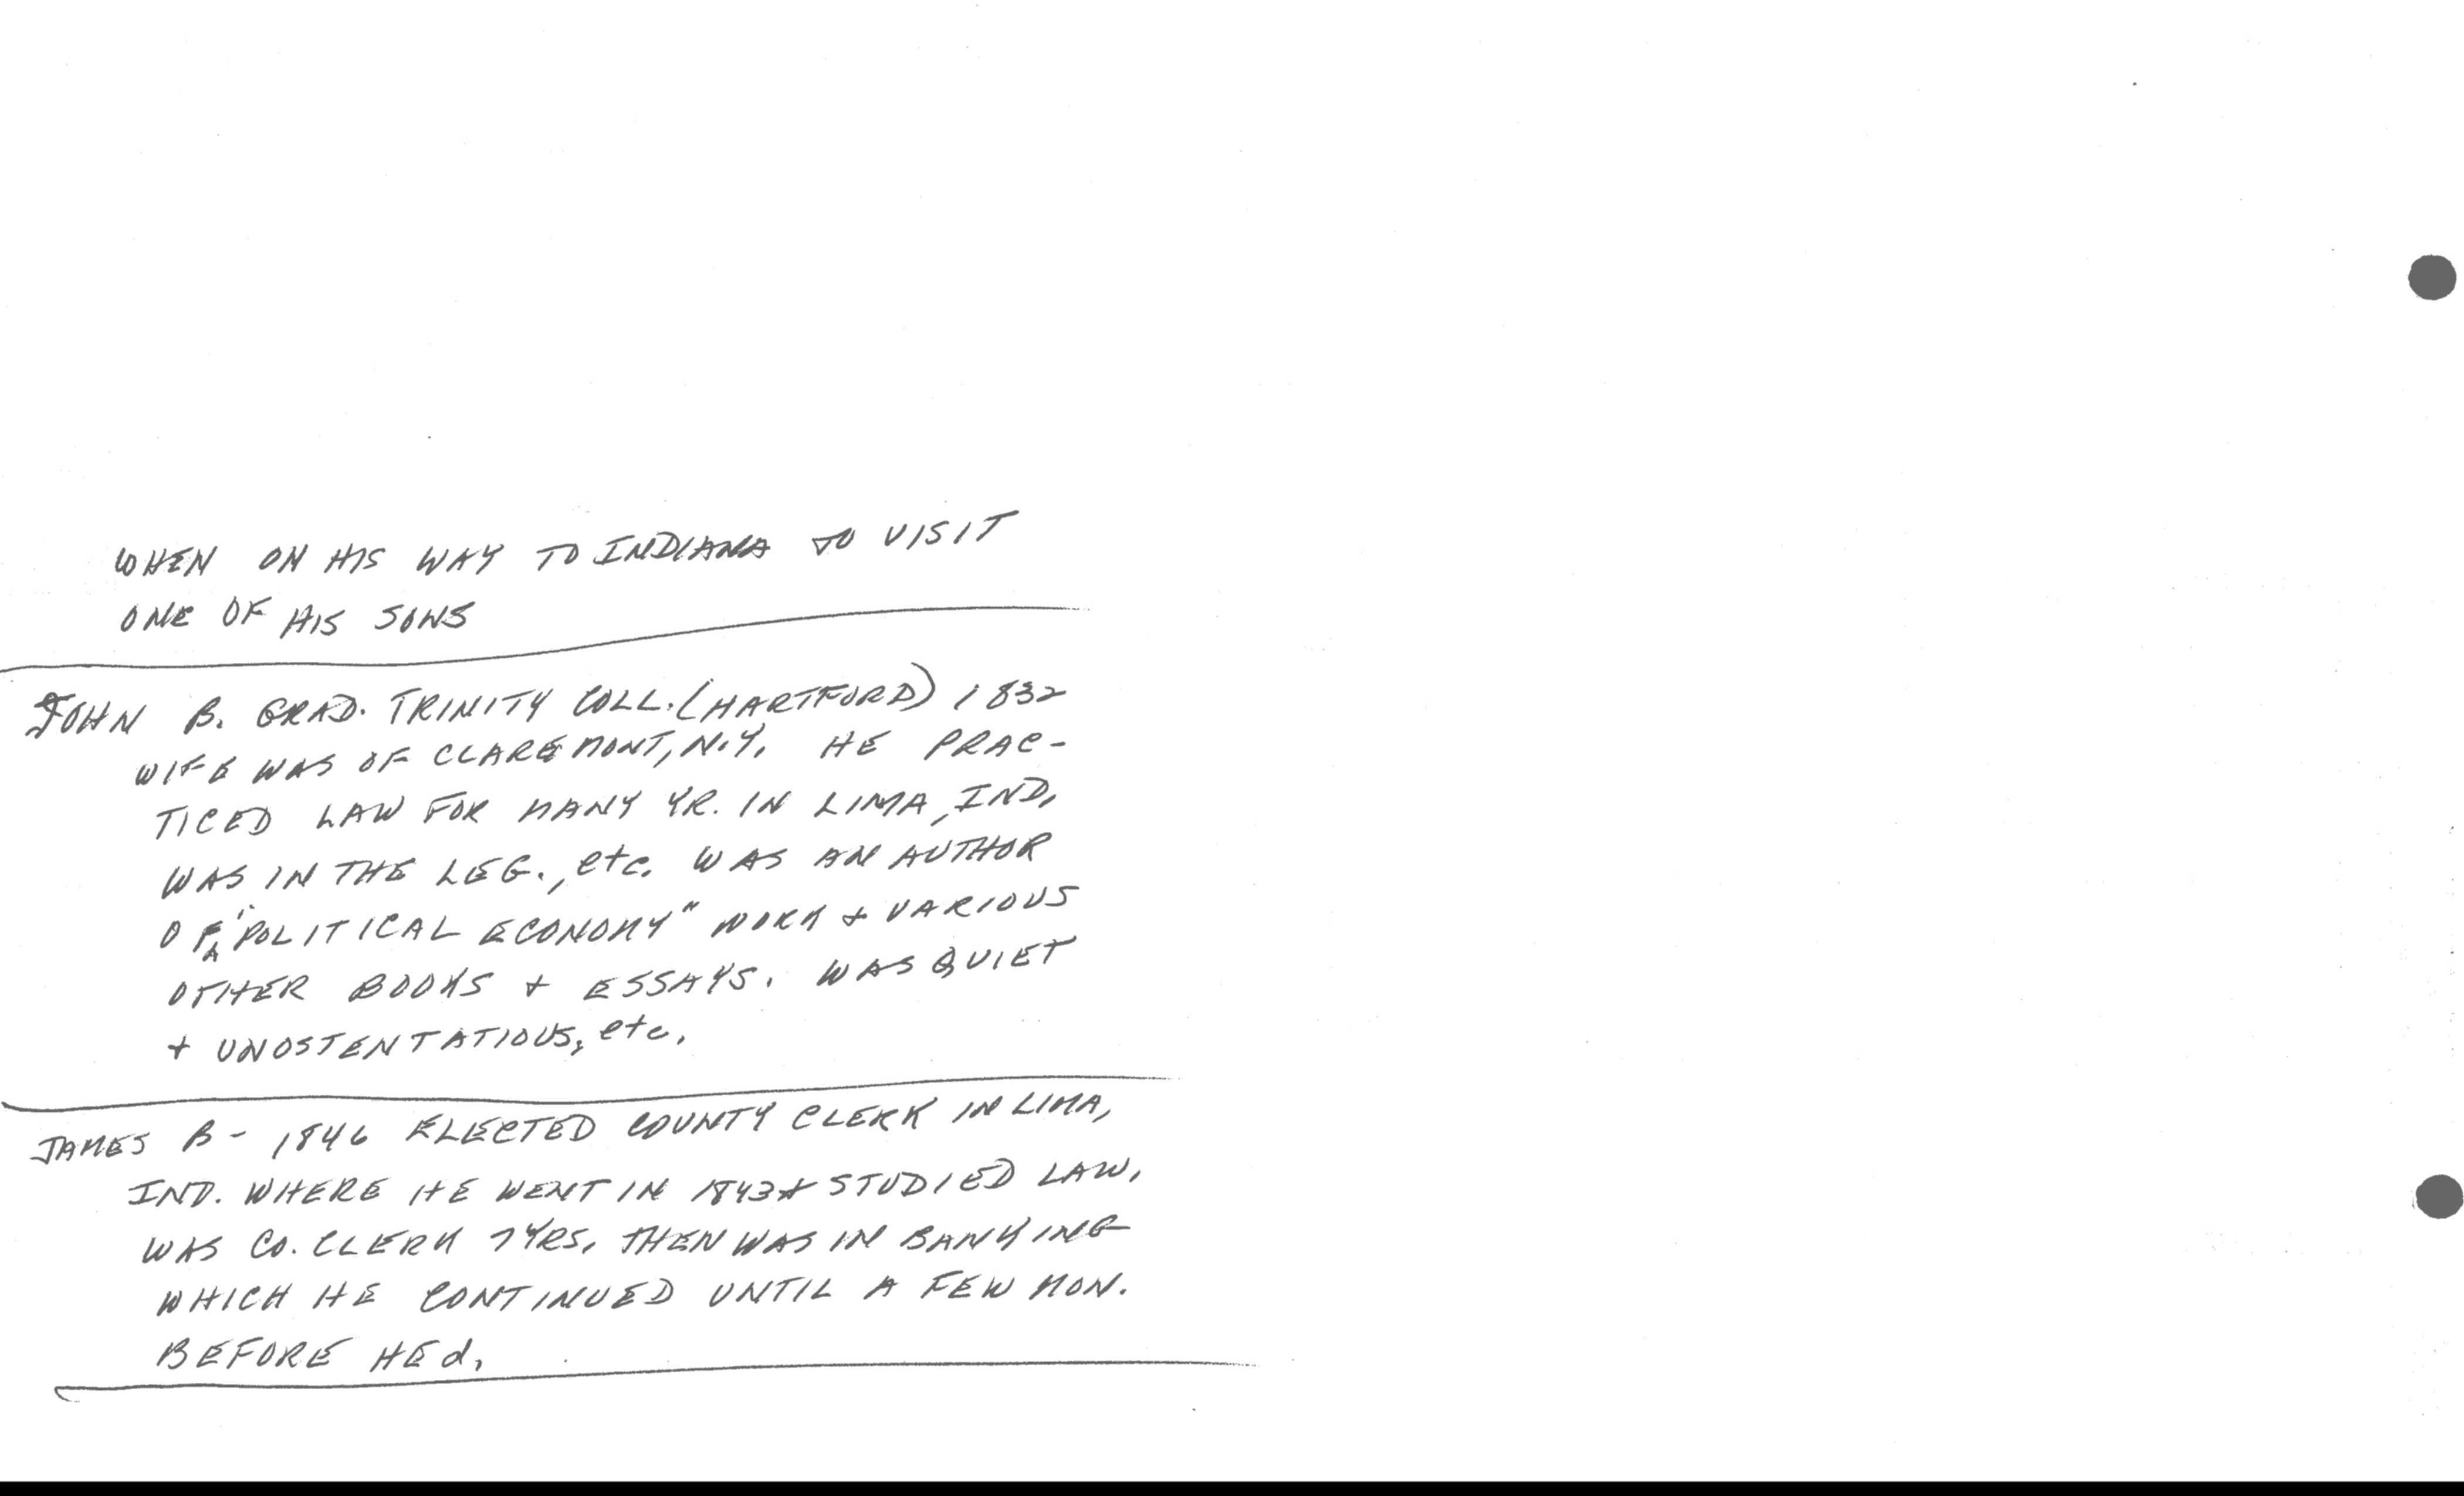 WHEN ON HIS WAY TO INDIANA TO VISIT
ONE OF HIS SONS
JOHN B. GRAD. TRINITY COLL. (HARTFORD) 1832
WIFE WAS OF CLAREMONT, N.Y. HE PRAC-
TICED LAW FOR MANY YR. IN LIMA, IND.
WAS IN THE LEG., etc. WAS AN AUTHOR
OF A "POLITICAL ECONOMY" WORK + VARIOUS
OTHER BOOKS + ESSAYS. WAS QUIET
+ UNOSTENTATIOUS, etc.
JAMES B - 1846 ELECTED COUNTY CLERK IN LIMA,
IND. WHERE HE WENT IN 1843 + STUDIED LAW.
WAS CO. CLERK 7 YRS. THEN WAS IN BANKING
WHICH HE CONTINUED UNTIL A FEW MON.
BEFORE HE d.